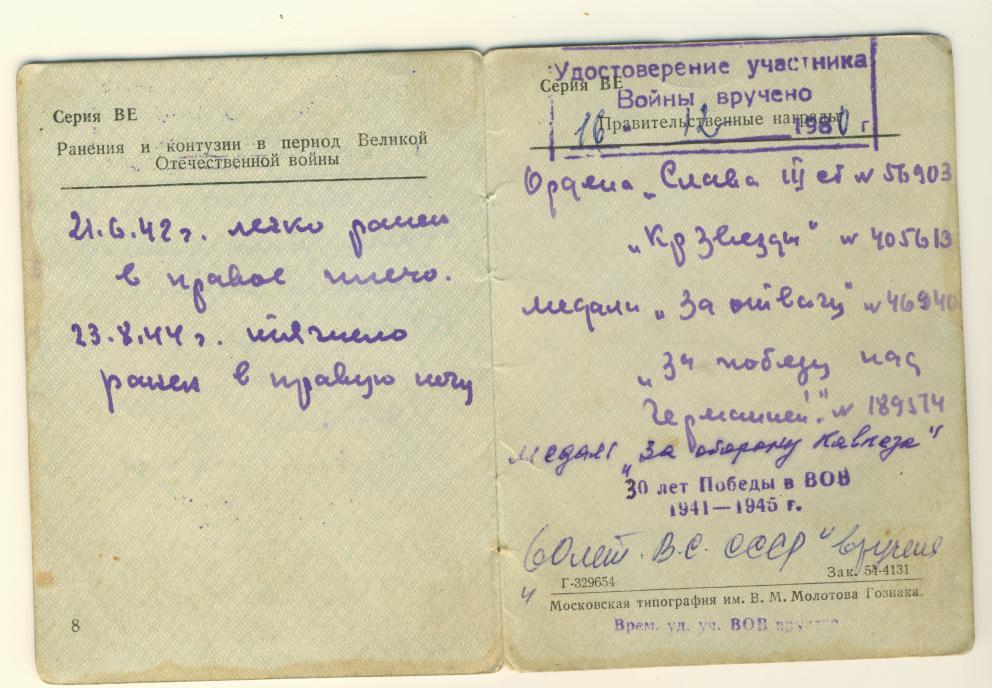 Серия ВЕ
Ранения и контузии в период Великой
Отечественной войны
21.6.42 г. легко ранен
в правое плечо.
23.8.44 г. тяжело
ранен в правую ногу
8
Удостоверение участника
Серия ВЕ
Войны вручено
Правительственные награды
16 12 1980 г
Ордена „Слава III ст № 56903
„Кр Звезды" № 405613
медали „За отвагу" № 46940
„За победу над
Германией." № 189574
медаль „За оборону Кавказа"
30 лет Победы в ВОВ
1941—1945 г.
„60 лет В.С. СССР" вручена
Г-329654
Зак. 54-4131
Московская типография им. В. М. Молотова Гознака.
Врем. уд. уч. ВОВ вручено